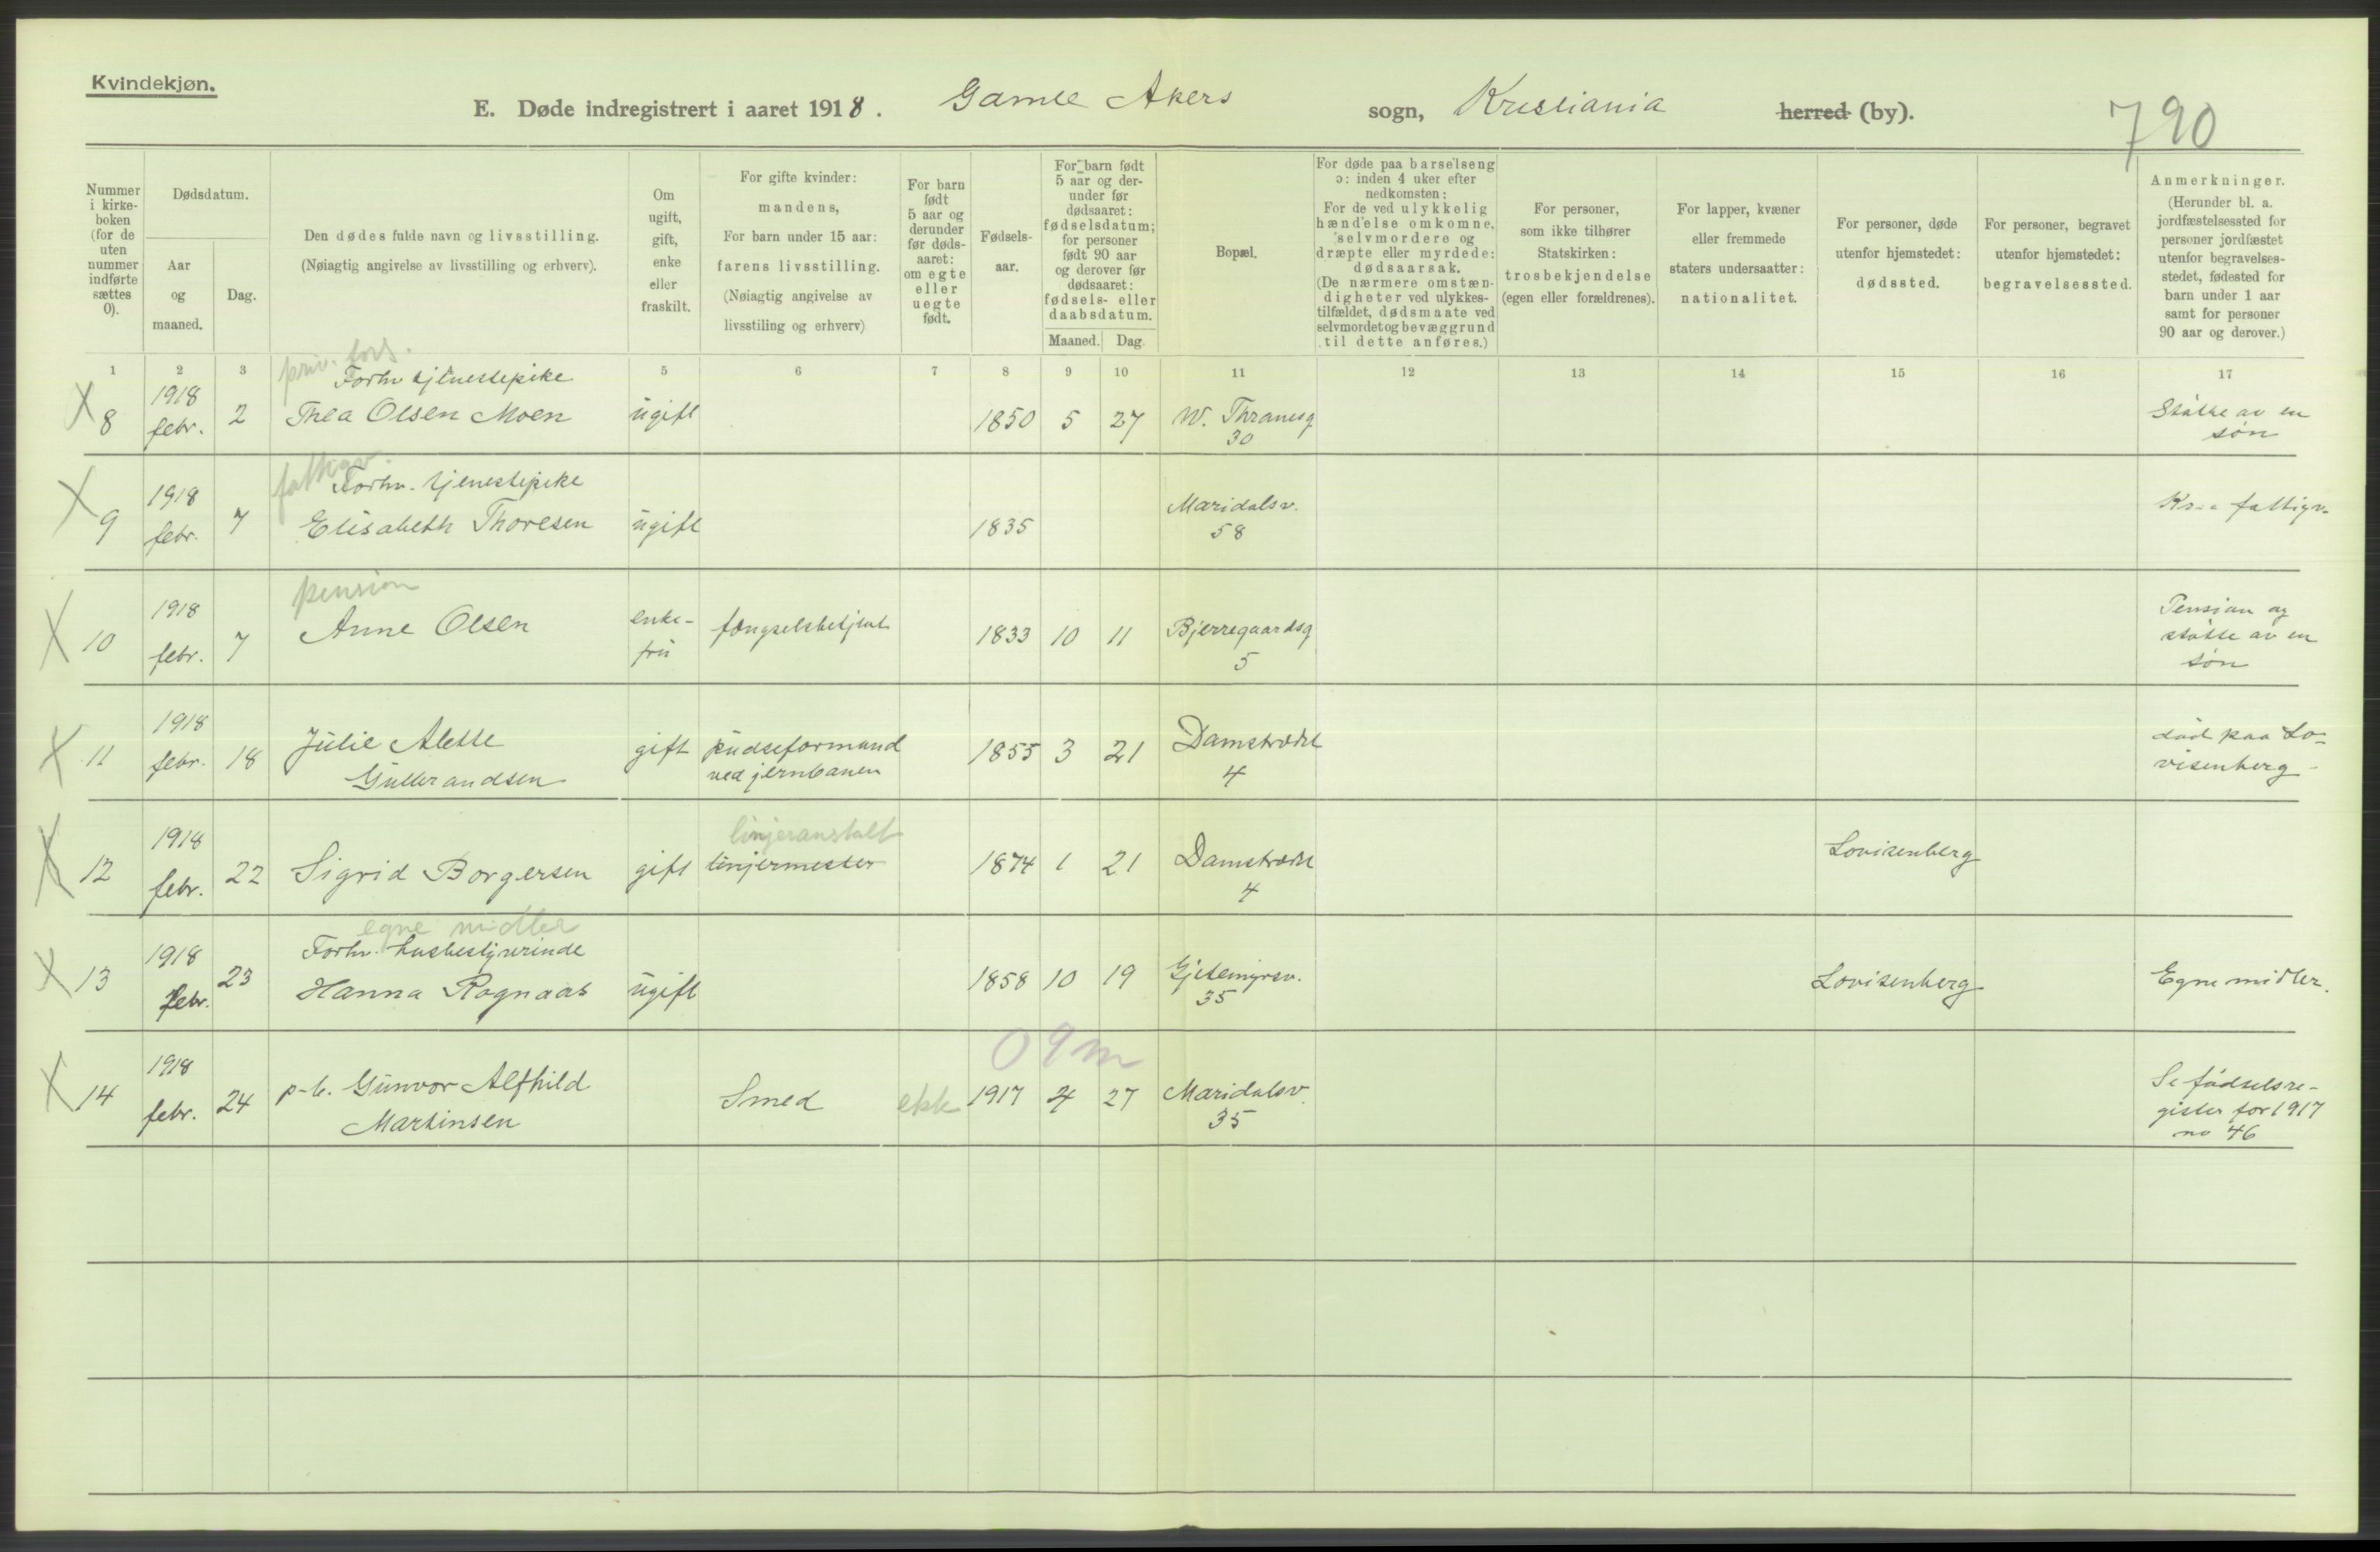 Kvindekjøn.
E. Døde indregistrert i aaret 1918. Gamle Akers sogn, Kristiania herred (by).
790
Nummer i kirkeboken (for de uten nummer indførte sættes 0).
Dødsdatum.
Aar og maaned.
Dag.
Den dødes fulde navn og livsstilling.
(Nøiagtig angivelse av livsstilling og erhverv).
Om ugift, gift, enke eller fraskilt.
For gifte kvinder: mandens,
For barn under 15 aar: farens livsstilling.
(Nøiagtig angivelse av livsstiling og erhverv)
For barn født 5 aar og derunder før dødsaaret: om egte eller uegte født.
Fødselsaar.
For barn født 5 aar og derunder før dødsaaret: fødselsdatum; for personer født 90 aar og derover før dødsaaret: fødsels- eller daabsdatum.
Maaned. Dag.
Bopæl.
For døde paa barselseng ɔ: inden 4 uker efter nedkomsten:
For de ved ulykkelig hændelse omkomne, selvmordere og dræpte eller myrdede: dødsaarsak.
(De nærmere omstændigheter ved ulykkestilfældet, dødsmaate ved selvmordet og bevæggrund til dette anføres.)
For personer, som ikke tilhører Statskirken: trosbekjendelse (egen eller forældrenes).
For lapper, kvæner eller fremmede staters undersaatter: nationalitet.
For personer, døde utenfor hjemstedet: dødssted.
For personer, begravet utenfor hjemstedet: begravelsessted.
Anmerkninger.
(Herunder bl. a. jordfæstelsessted for personer jordfæstet utenfor begravelsesstedet, fødested for barn under 1 aar samt for personer 90 aar og derover.)
1 2 3 5 6 7 8 9 10 11 12 13 14 15 16 17
priv. fors.
Forhv. tjenestepike
8 1918 febr. 2 Thea Olsen Moen ugift 1850 5 27 W. Thranesg. 30 Støtte av en søn
fattigv.
Forhv. tjenestepike
9 1918 febr. 7 Elisabeth Thoresen ugift 1835 Maridalsv. 58 Kr.a fattigv.
pension
10 1918 febr. 7 Anne Olsen enkefru fængselsbetjent 1833 10 11 Bjerregaardsg 5 Pension og støtte av en søn
11 1918 febr. 18 Julie Alette Gulbrandsen gift pudseformand ved jernbanen 1855 3 21 Damstrædet 4 død paa Lovisenberg
linjeranstalt
12 1918 febr. 22 Sigrid Borgersen gift linjermester 1874 1 21 Damstrædet 4 Lovisenberg
egne midler
Forhv. husbestyrerinde
13 1918 febr. 23 Hanna Rognaas ugift 1858 10 19 Gjetemyrsv. 35 Lovisenberg Egne midler.
0 9 m
14 1918 febr. 24 p-b. Gunvor Alfhild Martinsen Smed ekte 1917 4 27 Maridalsv. 35 Se fødselsregister for 1917 no 46